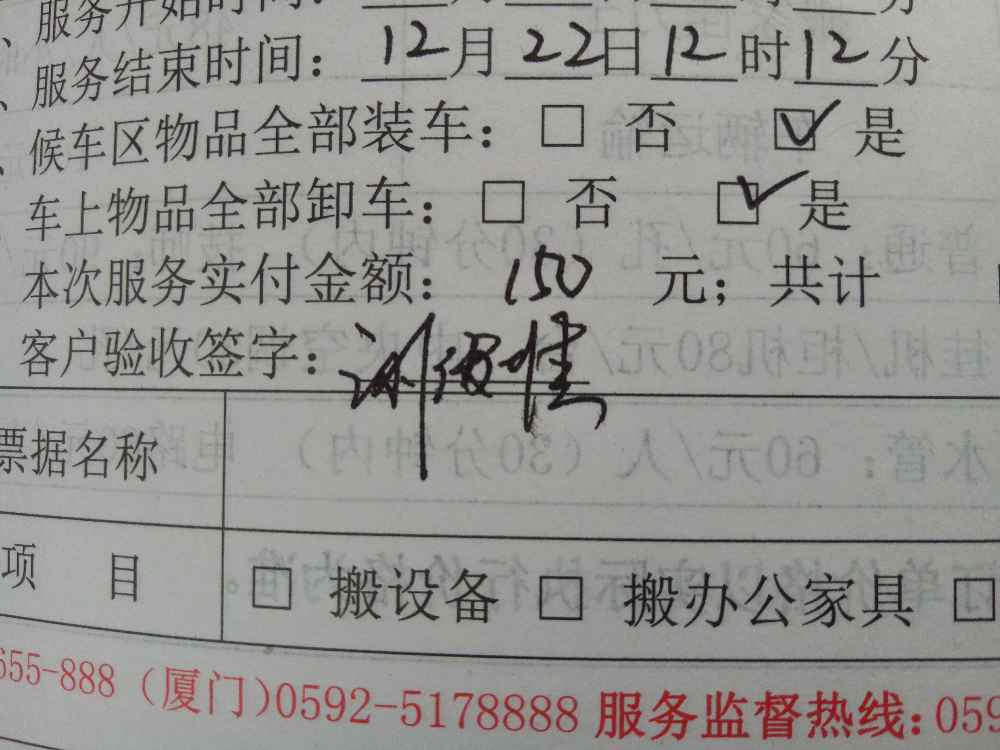 、服务开始时间：
、服务结束时间：12月22日12时12分
、候车区物品全部装车：□ 否 ☑ 是
车上物品全部卸车：□ 否 ☑ 是
本次服务实付金额：150 元；共计
客户验收签字：
票据名称
项 目 □ 搬设备 □ 搬办公家具 □
655-888（厦门)0592-5178888 服务监督热线：059